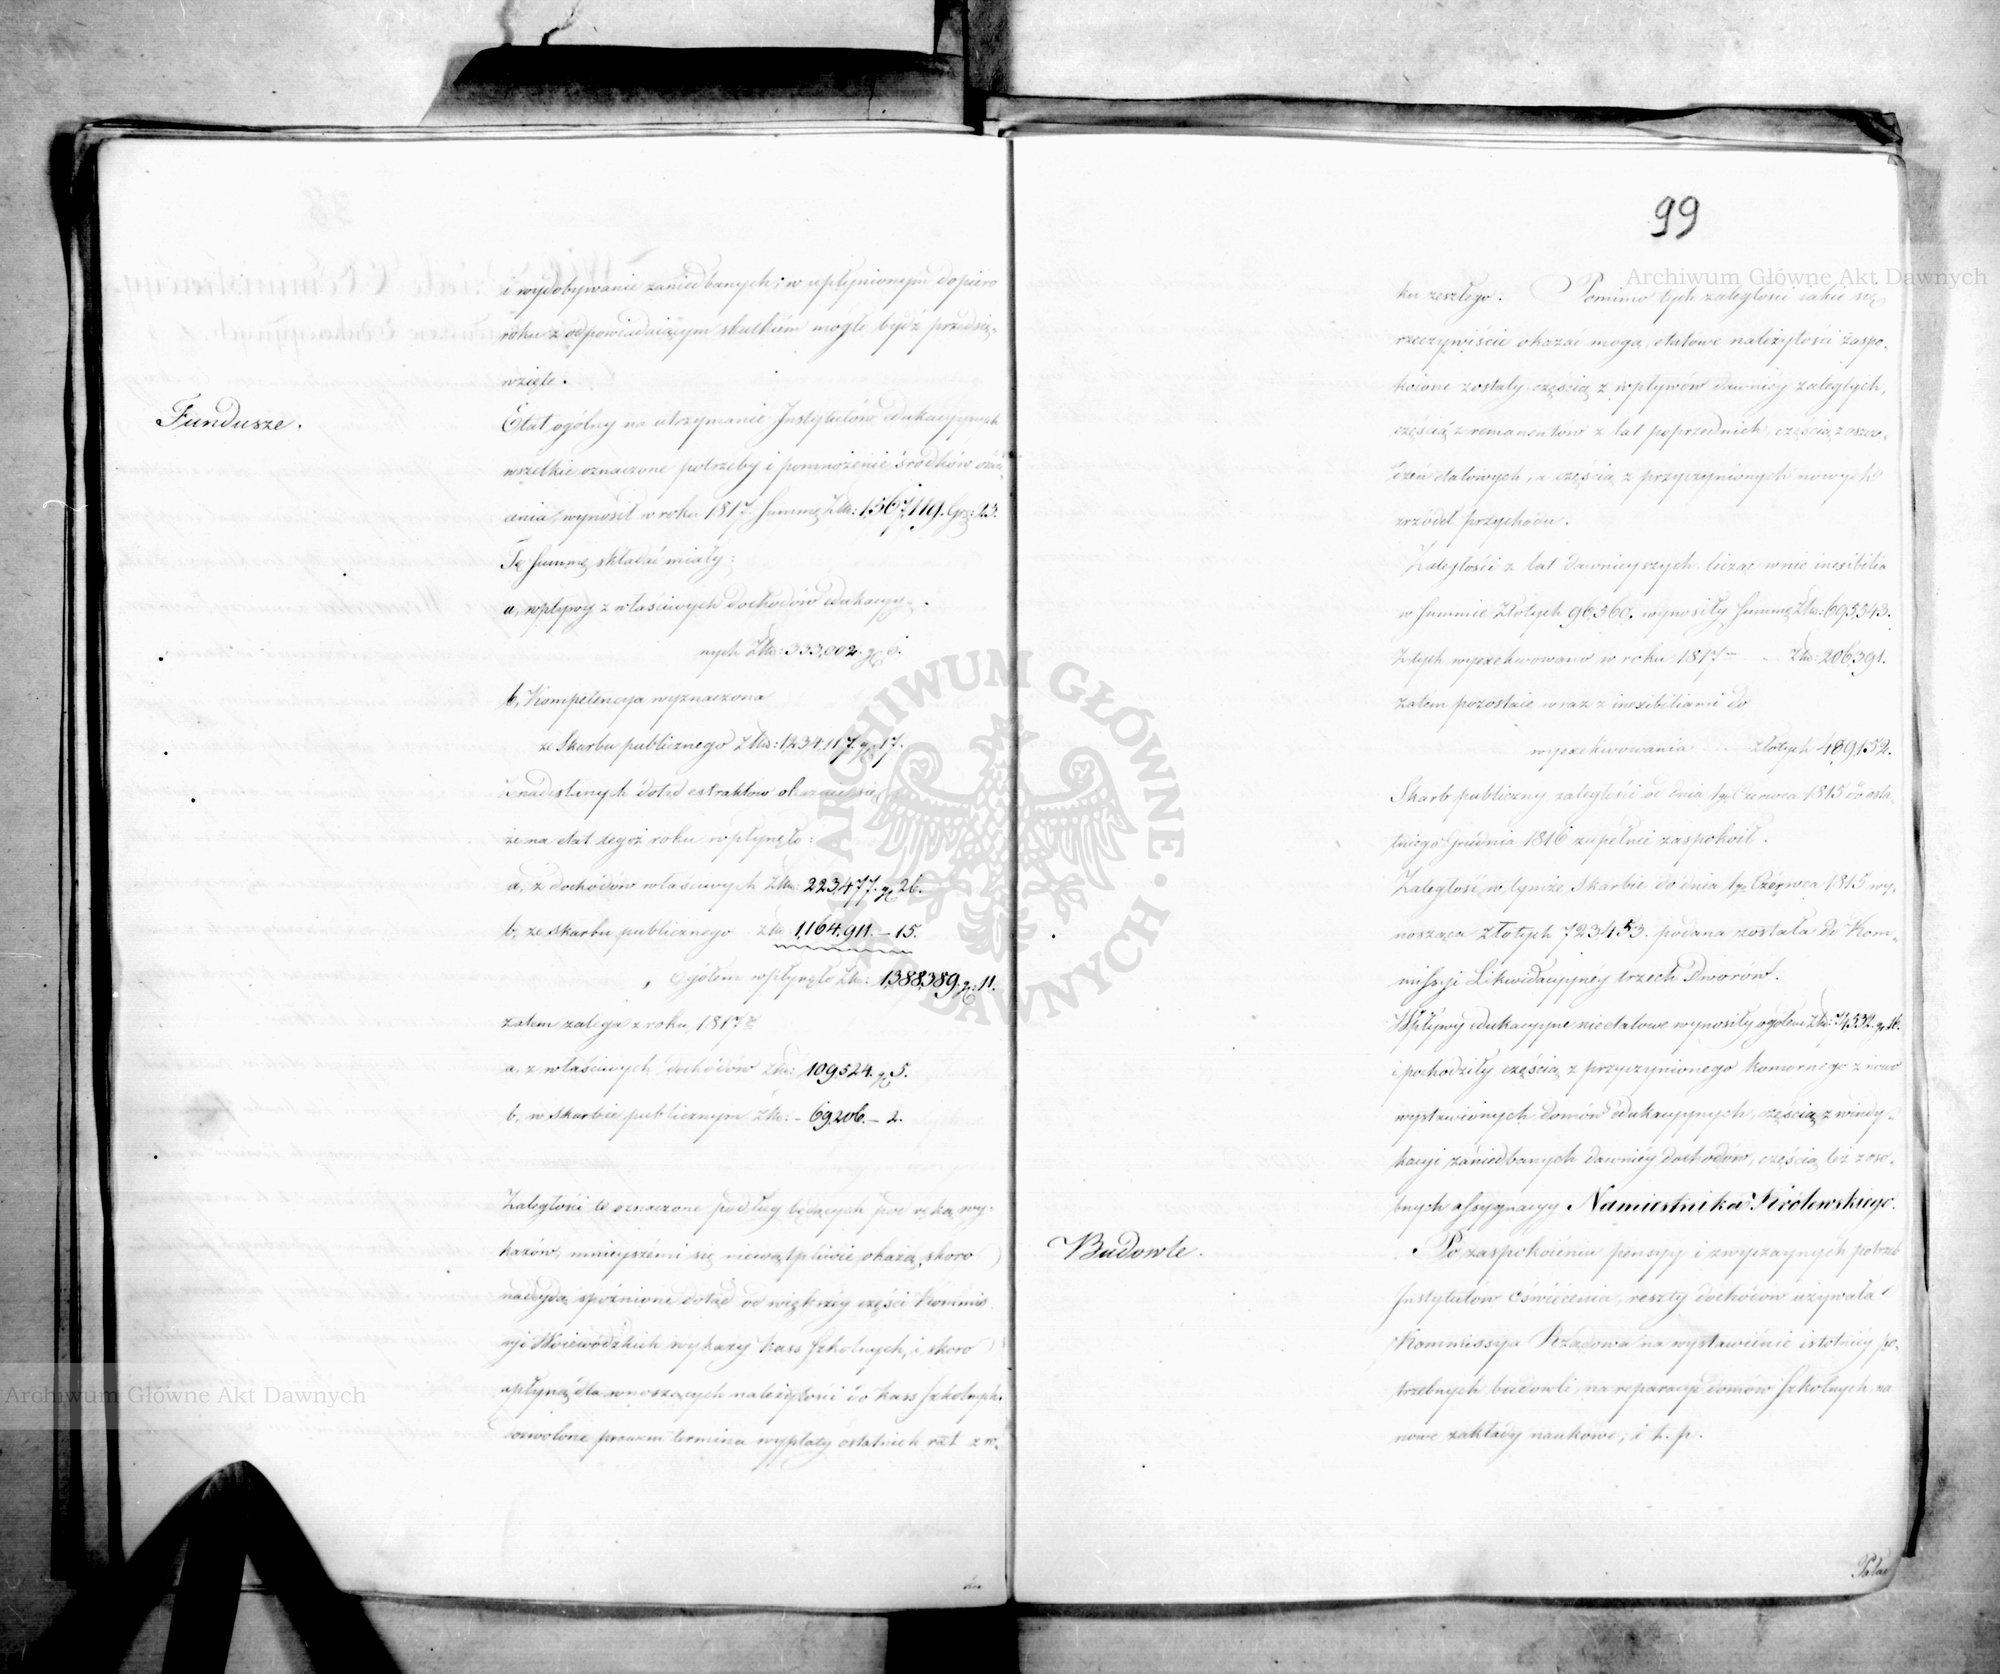 i wydobywanie zaniedbanych; w upłynionym dopiero
roku z odpowiadaiącym skutkiem mogło bydź przedsię-
wzięte.
Fundusze.
Etat ogólny na utrzymanie Instytutów edukacyinych
wszelkie oznaczone potrzeby i pomnożenie środków oświe-
cenia, wynosił w roku 1817. Summę Złt: 1,567,119. Gr: 23.
Tę Summę składać miały:
a, wpływy z właściwych dochodów edukacyy-
nych Złt: 333,002. gr 6.
b, Kompetencya wyznaczona
ze Skarbu publicznego Złt: 1,234,117. gr 17.
Z nadesłanych dotąd extraktów okazuie się
że na etat tegoż roku wpłynęło:
a, z dochodów właściwych Złt: 223,477. gr 26.
b, ze skarbu publicznego Złt 1,164,911. – 15.
Ogółem wpłynęło Złt: 1,388,389. gr: 11.
zatem zalega z roku 1817
a, z właściwych dochodów Złt: 109,524. gr 5.
b, w skarbie publicznym Złt: – 69,206. – 2.
Zaległości te oznaczone podług będących pod ręką wy-
kazów, mnieyszemi się niewątpliwie okażą, skoro
nadeydą spóźnione dotąd od większey części Kommis-
syi Woiewódzkich wykazy kass szkolnych, i skoro
upłyną dla wnoszących należytości do kass szkolnych
dozwolone prawem termina wypłaty ostatnich rat z ro-
ku
99
ku zeszłego. Pomimo tych zaległości iakie się
rzeczywiście okazać mogą, etatowe należytości zaspo-
koione zostały częścią z wpływów dawniéy zaległych,
częścią z remanentów z lat poprzednich, częścią z oszczę-
dzeń etatowych, a częścią z przyczynionych nowych
źródeł przychodu.
Zaległości z lat dawnieyszych, licząc w nie inexibilia
w Summie Złotych 96,560. wynosiły Summę Złt: 695,543.
Z tych wyexekwowano w roku 1817 – Złt: 206,391.
zatem pozostaie wraz z inexibiliami do
wyexekwowania złotych 489,152.
Skarb publiczny zaległości od dnia 1go Czerwca 1815 do osta-
tniego Grudnia 1816 zupełnie zaspokoił.
Zaległość w tymże Skarbie do dnia 1go Czerwca 1815 wy-
nosząca Złotych 723,453. podana została do Kom-
missyi Likwidacyyney trzech Dworów.
Wpływy edukacyyne nieetatowe wynosiły ogółem Złt: 74,532. gr 26.
i pochodziły częścią z przyczynionego komornego z nowo
wystawionych domów edukacyynych, częścią z windy-
kacyi zaniedbanych dawniéy dochodów, częścią też z oso-
bnych assygnacyy Namiestnika Królewskiego.
Budowle.
Po zaspokoieniu pensyy i zwyczaynych potrzeb
Instytutów Oświecenia, reszty dochodów używała
Kommissya Rządowa na wystawienie istotniéy po-
trzebnych budowli, na reparacye domów szkolnych, na
nowe zakłady naukowe; i t. p.
Pałac
Archiwum Główne Akt Dawnych
Archiwum Główne Akt Dawnych
ARCHIWUM GŁÓWNE AKT DAWNYCH